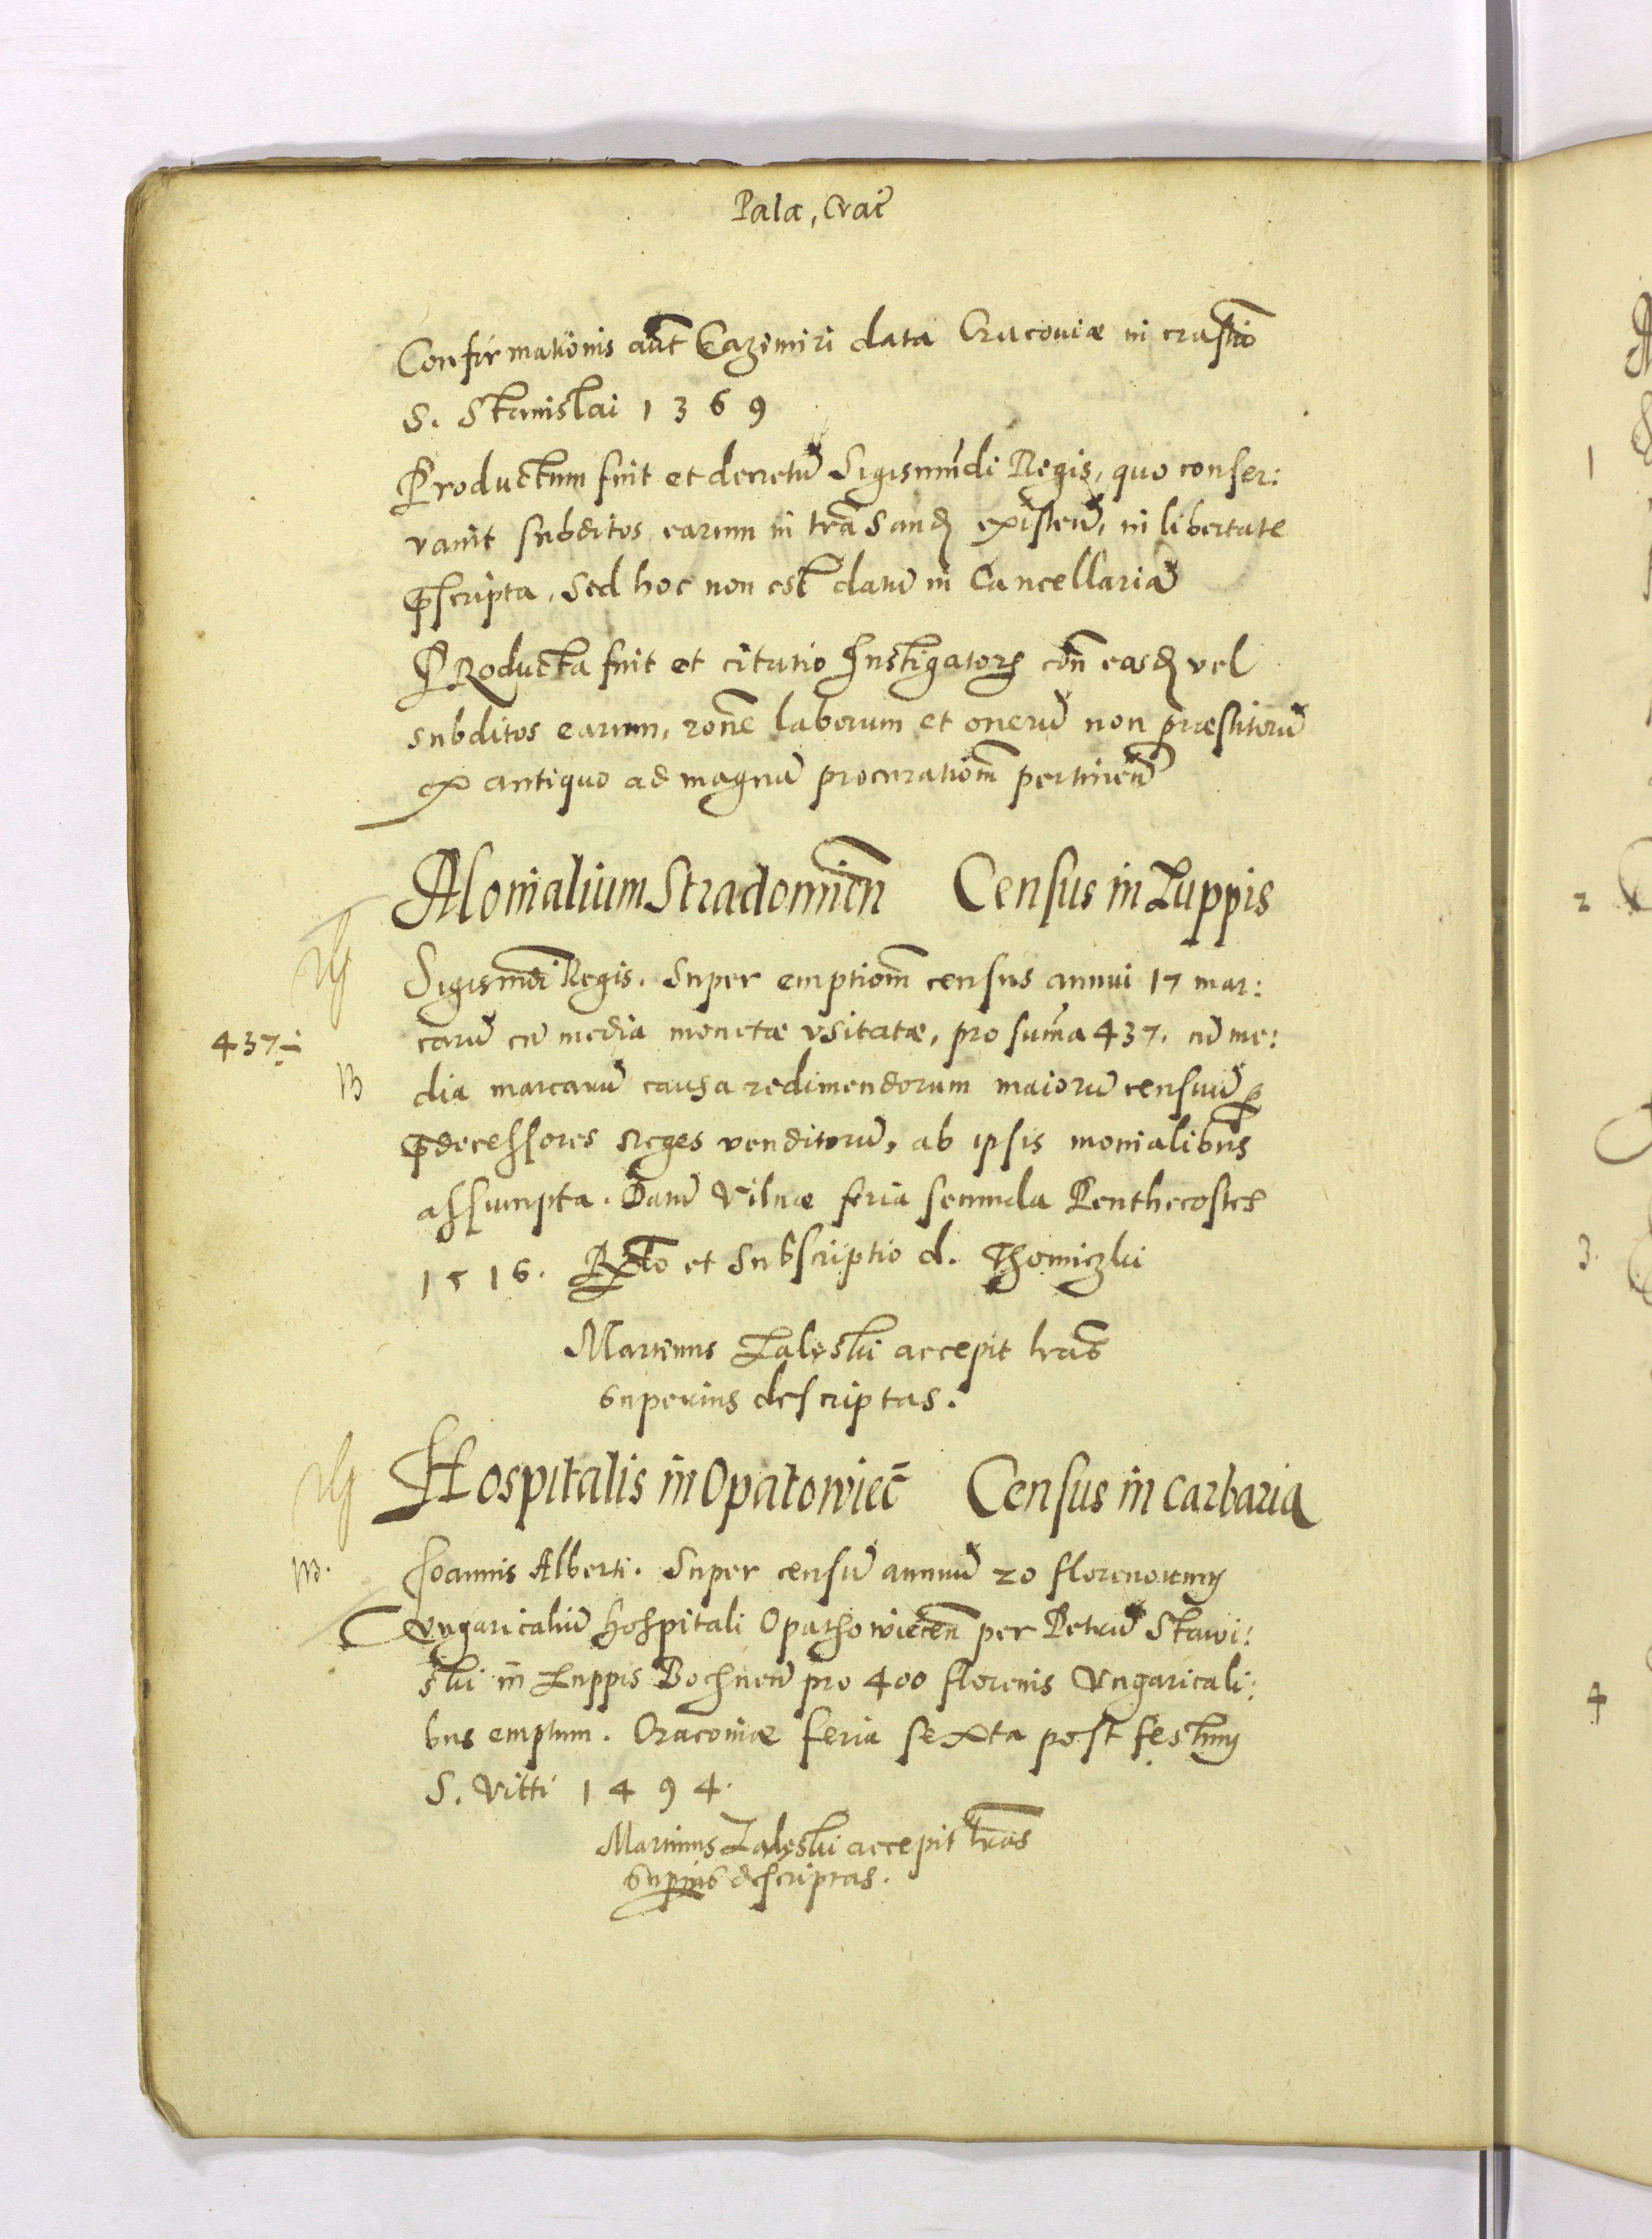 Pala, Crac̃
Confirmationis aut̃ Cazimiri data Cracoviæ in crastĩo
S. Stanislai 1369
Productum fuit et decretũ Sigismũdi Regis, quo conser:
vavit subditos earum in trã Sand existeñ, in libertate
p̃scripta, Sed hoc non est datũ in Cancellariã
PRoducta fuit et citatio Instigatorꝭ con̄ easd vel
subditos earum, rone̅ laborum et onerũ non præstitorũ
ex antiquo ad magnũ procurationẽ pertineñ
Monialium Stradomien̄ Census in Zuppis
Sigismũdi Regis. Super emptionẽ census annui 17 mar:
437 ÷
carũ cũ media monetæ vsitatæ, pro sum̃a 437. cũ me:
dia marcarũ causa redimendorum maiorũ censuũ ꝑ
p̃decessores reges venditorũ, ab ipsis monialibus
assumpta. Datũ Vilnæ feria secunda Penthecostes
1516. Rel̃to et Subscriptio d. Thomiczki
Martinus Zaleski accepit lrãs
superius descriptas.
Hospitalis in Opatowiec̃ Census in Carbaria
Joannis Alberti. Super censũ annuũ 20 florenorum
Vngaricaliũ hospitali Opathowiecen̄ per Petrũ Stawi:
ski in Zuppis Bochneñ pro 400 florenis Vngaricali:
bus emptum. Cracoviæ feria sexta post festum
S. Vitti 1494.
Martinus Zaleski accepit lrãs
supius descriptas.
1
2
3.
4